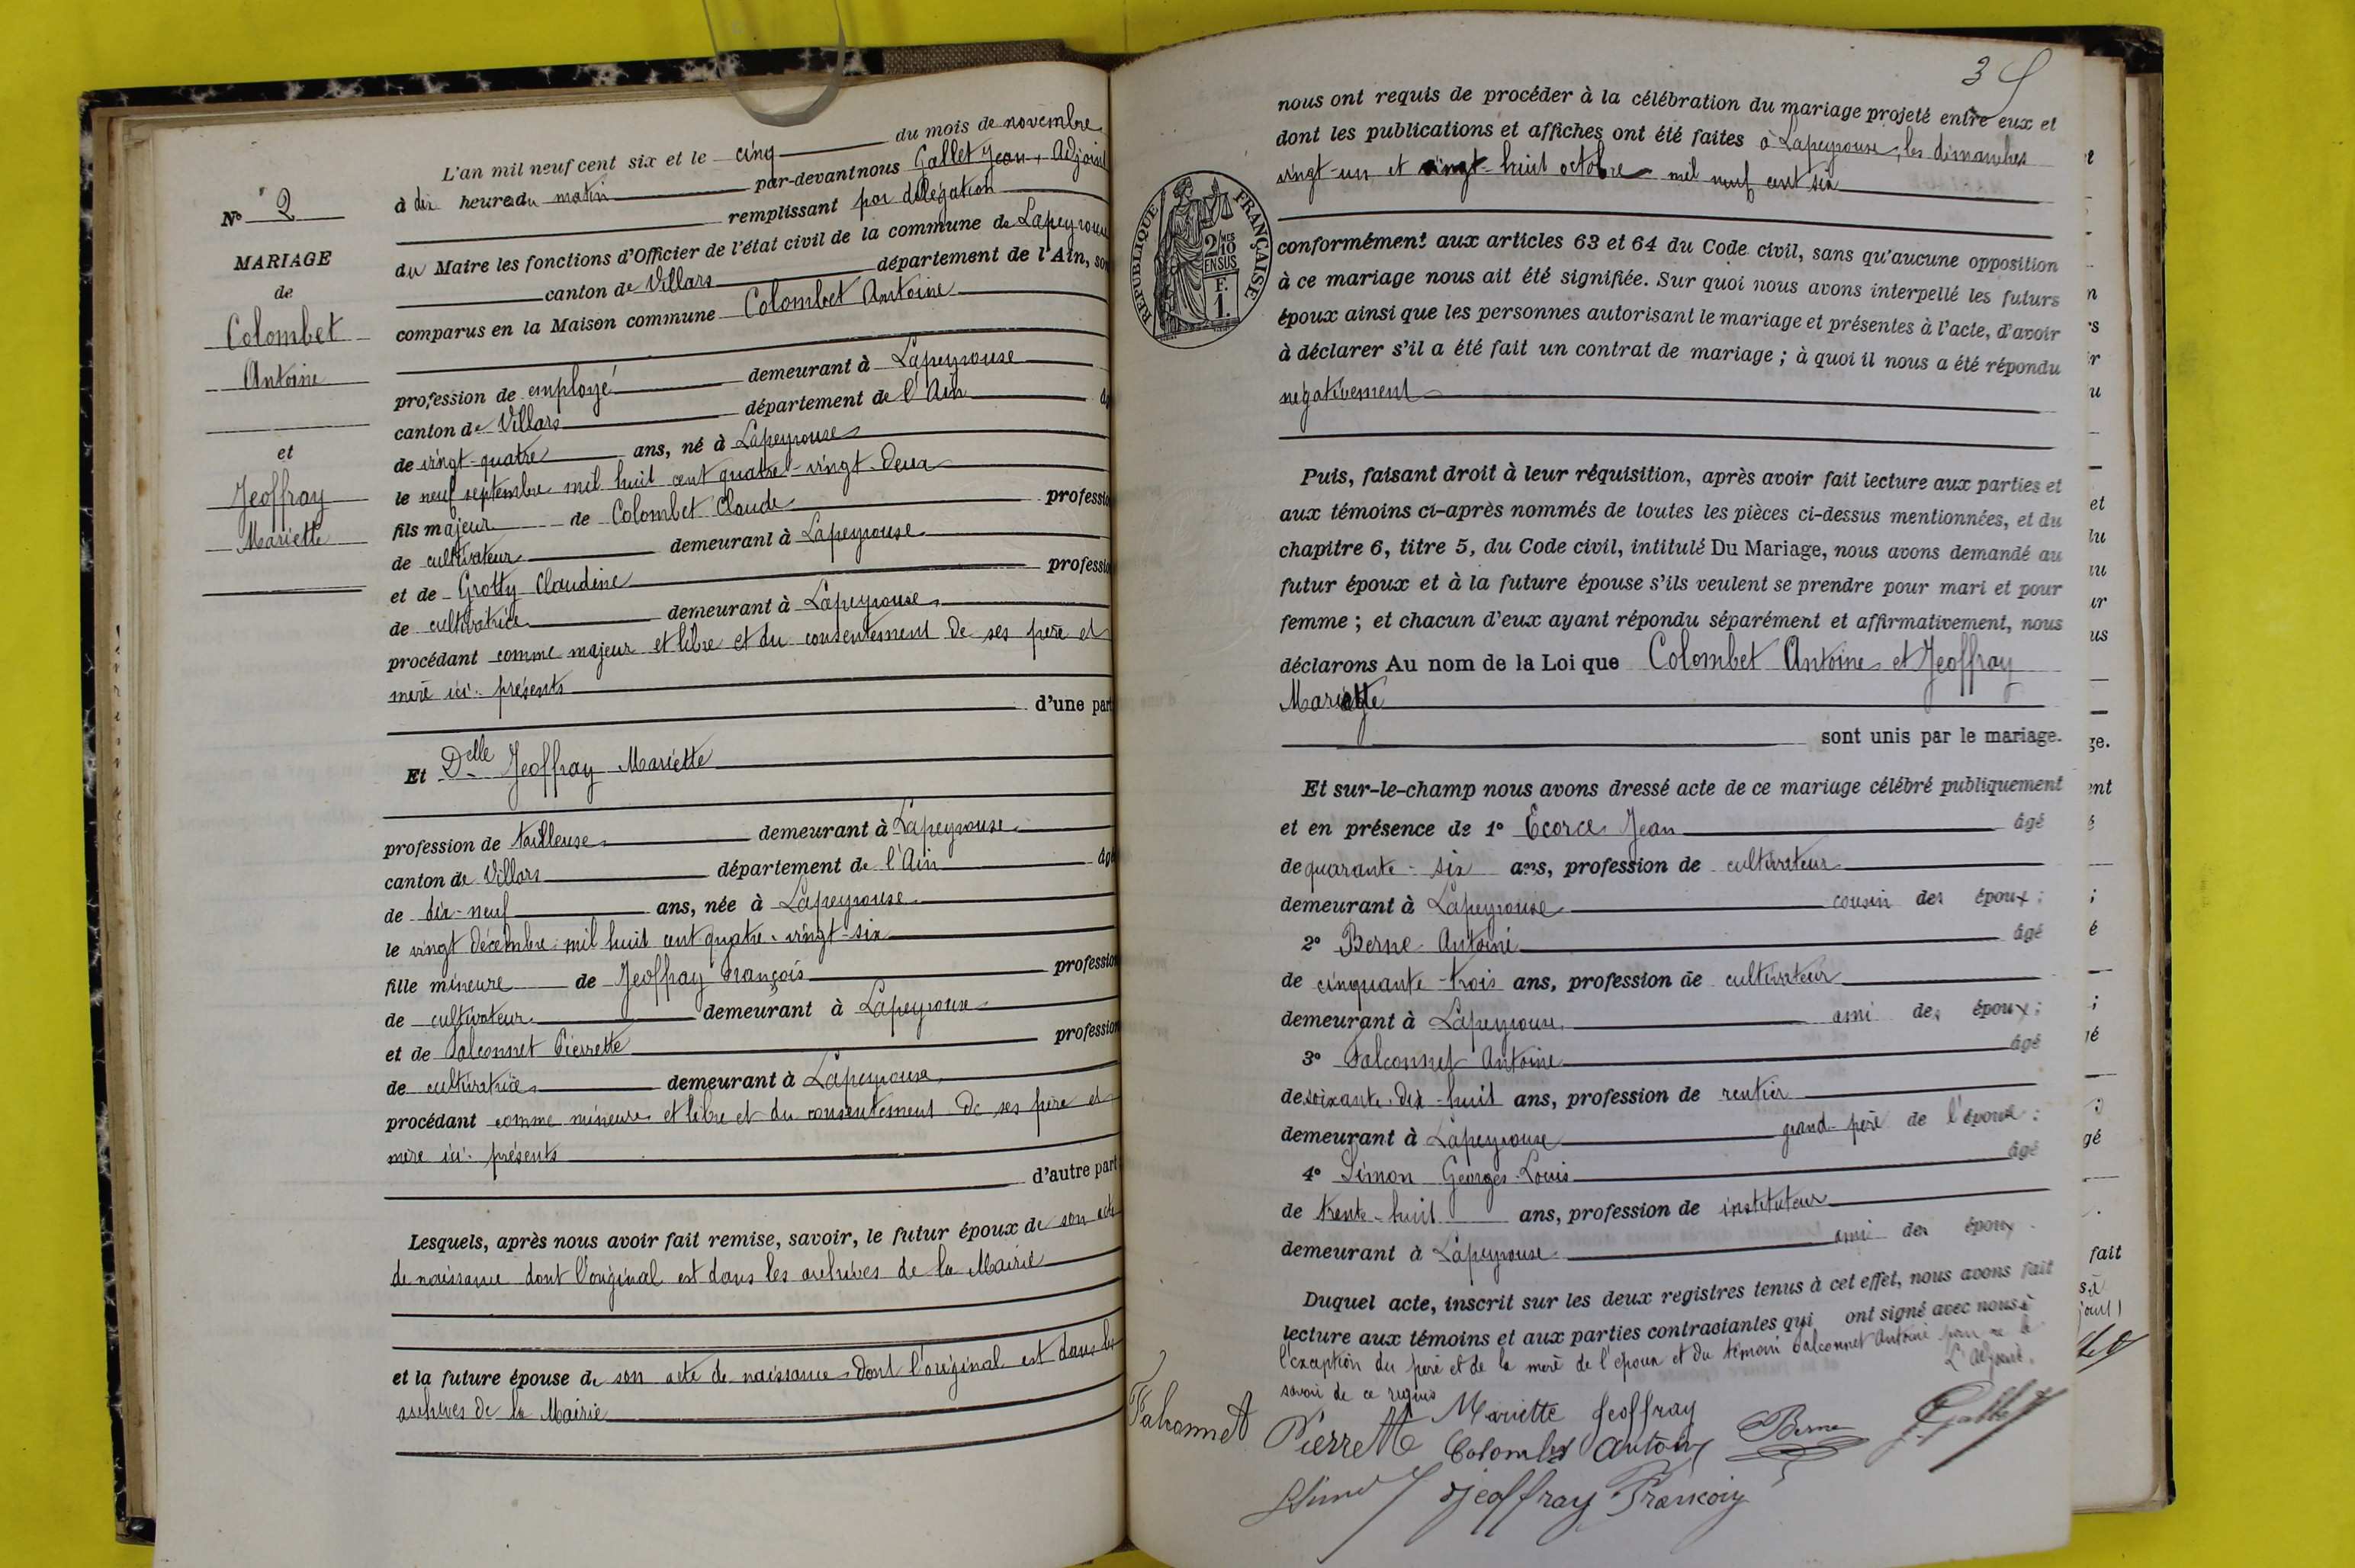 N° 2
MARIAGE
de
Colombet
Antoine
et
Jeoffray
Mariette
L'an mil neuf cent six et le cinq du mois de novembre
à dix heures du matin par-devant nous Gallet Jean, Adjoint
remplissant par délégation
du Maire les fonctions d'Officier de l'état civil de la commune de Lapeyrouse
canton de Villars département de l'Ain, son
comparus en la Maison commune Colombet Antoine
profession de employé demeurant à Lapeyrouse
canton de Villars département de l'Ain âg
de vingt-quatre ans, né à Lapeyrouse
le neuf septembre mil huit cent quatre-vingt-deux
fils majeur de Colombet Claude professio
de cultivateur demeurant à Lapeyrouse
et de Grotty Claudine professio
de cultivatrice demeurant à Lapeyrouse
procédant comme majeur et libre et du consentement de ses père et
mère ici présents
d'une part
Et Delle Jeoffray Mariette
profession de tailleuse demeurant à Lapeyrouse
canton de Villars département de l'Ain âgé
de dix-neuf ans, née à Lapeyrouse
le vingt décembre mil huit cent quatre-vingt-six
fille mineure de Jeoffray François profession
de cultivateur demeurant à Lapeyrouse
et de Falconnet Pierrette profession
de cultivatrice demeurant à Lapeyrouse
procédant comme mineure et libre et du consentement de ses père et
mère ici présents
d'autre part
Lesquels, après nous avoir fait remise, savoir, le futur époux de son acte
de naissance dont l'original est dans les archives de la Mairie
et la future épouse de son acte de naissance dont l'original est dans les
archives de la Mairie
3
nous ont requis de procéder à la célébration du mariage projeté entre eux et
dont les publications et affiches ont été faites à Lapeyrouse, les dimanches
vingt-un et vingt-huit octobre mil neuf cent six
RÉPUBLIQUE FRANÇAISE
2/MES
10
EN SUS
F.
1.
conformément aux articles 63 et 64 du Code civil, sans qu'aucune opposition
à ce mariage nous ait été signifiée. Sur quoi nous avons interpellé les futurs
époux ainsi que les personnes autorisant le mariage et présentes à l'acte, d'avoir
à déclarer s'il a été fait un contrat de mariage ; à quoi il nous a été répondu
négativement
Puis, faisant droit à leur réquisition, après avoir fait lecture aux parties et
aux témoins ci-après nommés de toutes les pièces ci-dessus mentionnées, et du
chapitre 6, titre 5, du Code civil, intitulé Du Mariage, nous avons demandé au
futur époux et à la future épouse s'ils veulent se prendre pour mari et pour
femme ; et chacun d'eux ayant répondu séparément et affirmativement, nous
déclarons Au nom de la Loi que Colombet Antoine et Jeoffray
Mariette
sont unis par le mariage.
Et sur-le-champ nous avons dressé acte de ce mariage célébré publiquement
et en présence de 1° Ecorce Jean âgé
de quarante-six ans, profession de cultivateur
demeurant à Lapeyrouse cousin des époux ;
2° Berne Antoine âgé
de cinquante-trois ans, profession de cultivateur
demeurant à Lapeyrouse ami des époux ;
3° Falconnet Antoine âgé
de soixante-dix-huit ans, profession de rentier
demeurant à Lapeyrouse grand-père de l'épouse ;
4° Simon Georges-Louis âgé
de trente-huit ans, profession de instituteur
demeurant à Lapeyrouse ami des époux.
Duquel acte, inscrit sur les deux registres tenus à cet effet, nous avons fait
lecture aux témoins et aux parties contractantes qui ont signé avec nous à
l'exception du père et de la mère de l'époux et du témoin Falconnet Antoine pour ne le
savoir de ce requis L'Adjoint.
Mariette Jeoffray
Falconnet Pierrette Colombet Antoine Berne Gallet
Simon Jeoffray François